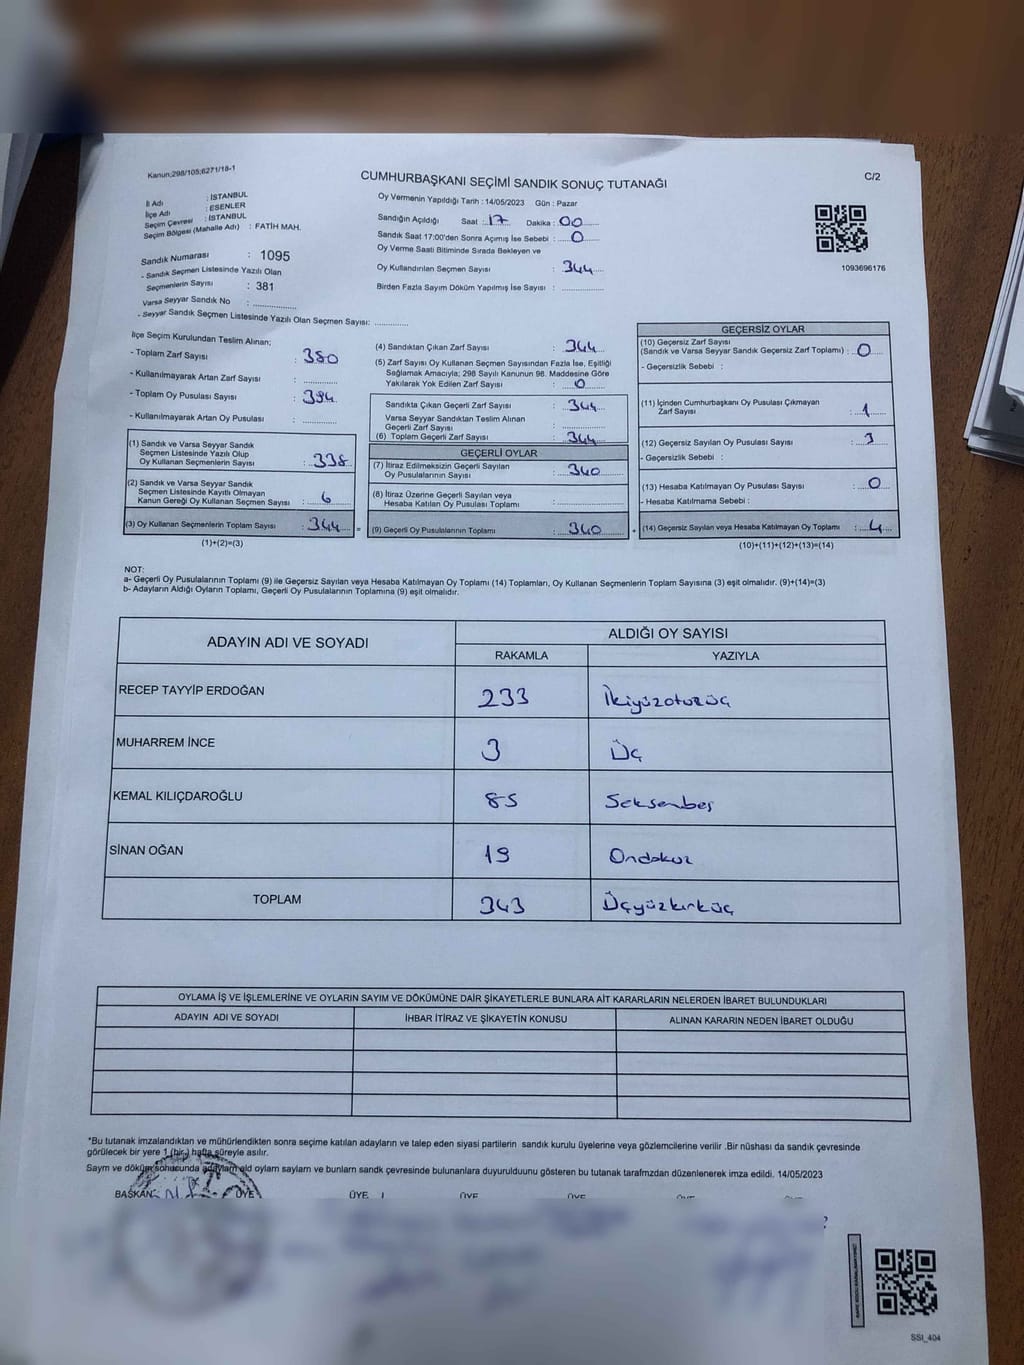 Kanun;298/105;6271/18-1
CUMHURBAŞKANI SEÇİMİ SANDIK SONUÇ TUTANAĞI
C/2
İl Adı : İSTANBUL
İlçe Adı : ESENLER
Seçim Çevresi : İSTANBUL
Seçim Bölgesi (Mahalle Adı) : FATİH MAH.
Sandık Numarası : 1095
- Sandık Seçmen Listesinde Yazılı Olan
Seçmenlerin Sayısı : 381
Varsa Seyyar Sandık No : ..............
- Seyyar Sandık Seçmen Listesinde Yazılı Olan Seçmen Sayısı: ............
Oy Vermenin Yapıldığı Tarih : 14/05/2023 Gün : Pazar
Sandığın Açıldığı Saat : 17 Dakika : 00
Sandık Saat 17:00'den Sonra Açımış İse Sebebi : 0
Oy Verme Saati Bitiminde Sırada Bekleyen ve
Oy Kullandırılan Seçmen Sayısı : 344
Birden Fazla Sayım Döküm Yapılmış İse Sayısı : ..............
1093696176
İlçe Seçim Kurulundan Teslim Alınan;
- Toplam Zarf Sayısı : 380
- Kullanılmayarak Artan Zarf Sayısı : ...........
- Toplam Oy Pusulası Sayısı : 394
- Kullanılmayarak Artan Oy Pusulası : ...........
(1) Sandık ve Varsa Seyyar Sandık
Seçmen Listesinde Yazılı Olup
Oy Kullanan Seçmenlerin Sayısı : 338
(2) Sandık ve Varsa Seyyar Sandık
Seçmen Listesinde Kayıtlı Olmayan
Kanun Gereği Oy Kullanan Seçmen Sayısı : 6
(3) Oy Kullanan Seçmenlerin Toplam Sayısı : 344 =
(1)+(2)=(3)
(4) Sandıktan Çıkan Zarf Sayısı : 344
(5) Zarf Sayısı Oy Kullanan Seçmen Sayısından Fazla İse, Eşitliği
Sağlamak Amacıyla; 298 Sayılı Kanunun 98. Maddesine Göre
Yakılarak Yok Edilen Zarf Sayısı : 0
Sandıkta Çıkan Geçerli Zarf Sayısı : 344
Varsa Seyyar Sandıktan Teslim Alınan
Geçerli Zarf Sayısı : ..............
(6) Toplam Geçerli Zarf Sayısı : 344
GEÇERLİ OYLAR
(7) İtiraz Edilmeksizin Geçerli Sayılan
Oy Pusulalarının Sayısı : 340
(8) İtiraz Üzerine Geçerli Sayılan veya
Hesaba Katılan Oy Pusulası Toplamı : ..............
(9) Geçerli Oy Pusulalarının Toplamı : 340 +
GEÇERSİZ OYLAR
(10) Geçersiz Zarf Sayısı
(Sandık ve Varsa Seyyar Sandık Geçersiz Zarf Toplamı) : 0
- Geçersizlik Sebebi :
(11) İçinden Cumhurbaşkanı Oy Pusulası Çıkmayan
Zarf Sayısı : 1
(12) Geçersiz Sayılan Oy Pusulası Sayısı : 3
- Geçersizlik Sebebi :
(13) Hesaba Katılmayan Oy Pusulası Sayısı : 0
- Hesaba Katılmama Sebebi :
(14) Geçersiz Sayılan veya Hesaba Katılmayan Oy Toplamı : 4
(10)+(11)+(12)+(13)=(14)
NOT:
a- Geçerli Oy Pusulalarının Toplamı (9) ile Geçersiz Sayılan veya Hesaba Katılmayan Oy Toplamı (14) Toplamları, Oy Kullanan Seçmenlerin Toplam Sayısına (3) eşit olmalıdır. (9)+(14)=(3)
b- Adayların Aldığı Oyların Toplamı, Geçerli Oy Pusulalarının Toplamına (9) eşit olmalıdır.
ADAYIN ADI VE SOYADI ALDIĞI OY SAYISI
RAKAMLA YAZIYLA
RECEP TAYYİP ERDOĞAN 233 İkiyüzotuzüç
MUHARREM İNCE 3 Üç
KEMAL KILIÇDAROĞLU 85 Seksenbeş
SİNAN OĞAN 19 Ondokuz
TOPLAM 343 Üçyüzkırküç
OYLAMA İŞ VE İŞLEMLERİNE VE OYLARIN SAYIM VE DÖKÜMÜNE DAİR ŞİKAYETLERLE BUNLARA AİT KARARLARIN NELERDEN İBARET BULUNDUKLARI
ADAYIN ADI VE SOYADI İHBAR İTİRAZ VE ŞİKAYETİN KONUSU ALINAN KARARIN NEDEN İBARET OLDUĞU
*Bu tutanak imzalandıktan ve mühürlendikten sonra seçime katılan adayların ve talep eden siyasi partilerin sandık kurulu üyelerine veya gözlemcilerine verilir .Bir nüshası da sandık çevresinde
görülecek bir yere 1 (bir) hafta süreyle asılır.
Sayım ve döküm sonucunda adayların ald oyların sayları ve bunların sandk çevresinde bulunanlara duyurulduunu gösteren bu tutanak tarafmzdan düzenlenerek imza edildi. 14/05/2023
BAŞKAN ÜYE ÜYE ÜYE ÜYE
SSI_404